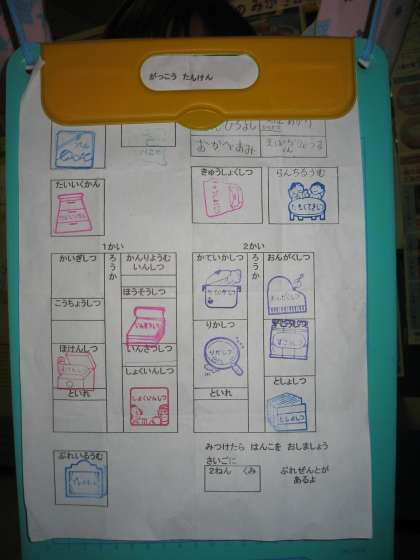 がっこう たんけん
たいいくかん
きゅうしょくしつ
らんちるうむ
1かい
2かい
かいぎしつ
ろうか
かんりようむ
いんしつ
かていかしつ
ろうか
おんがくしつ
ほうそうしつ
こうちょうしつ
りかしつ
ほけんしつ
いんさつしつ
といれ
しょくいんしつ
しょくいんしつ
といれ
としょしつ
としょしつ
ぷれいるうむ
みつけたら はんこを おしましょう
さいごに
2ねん くみ
ぷれぜんとが
あるよ